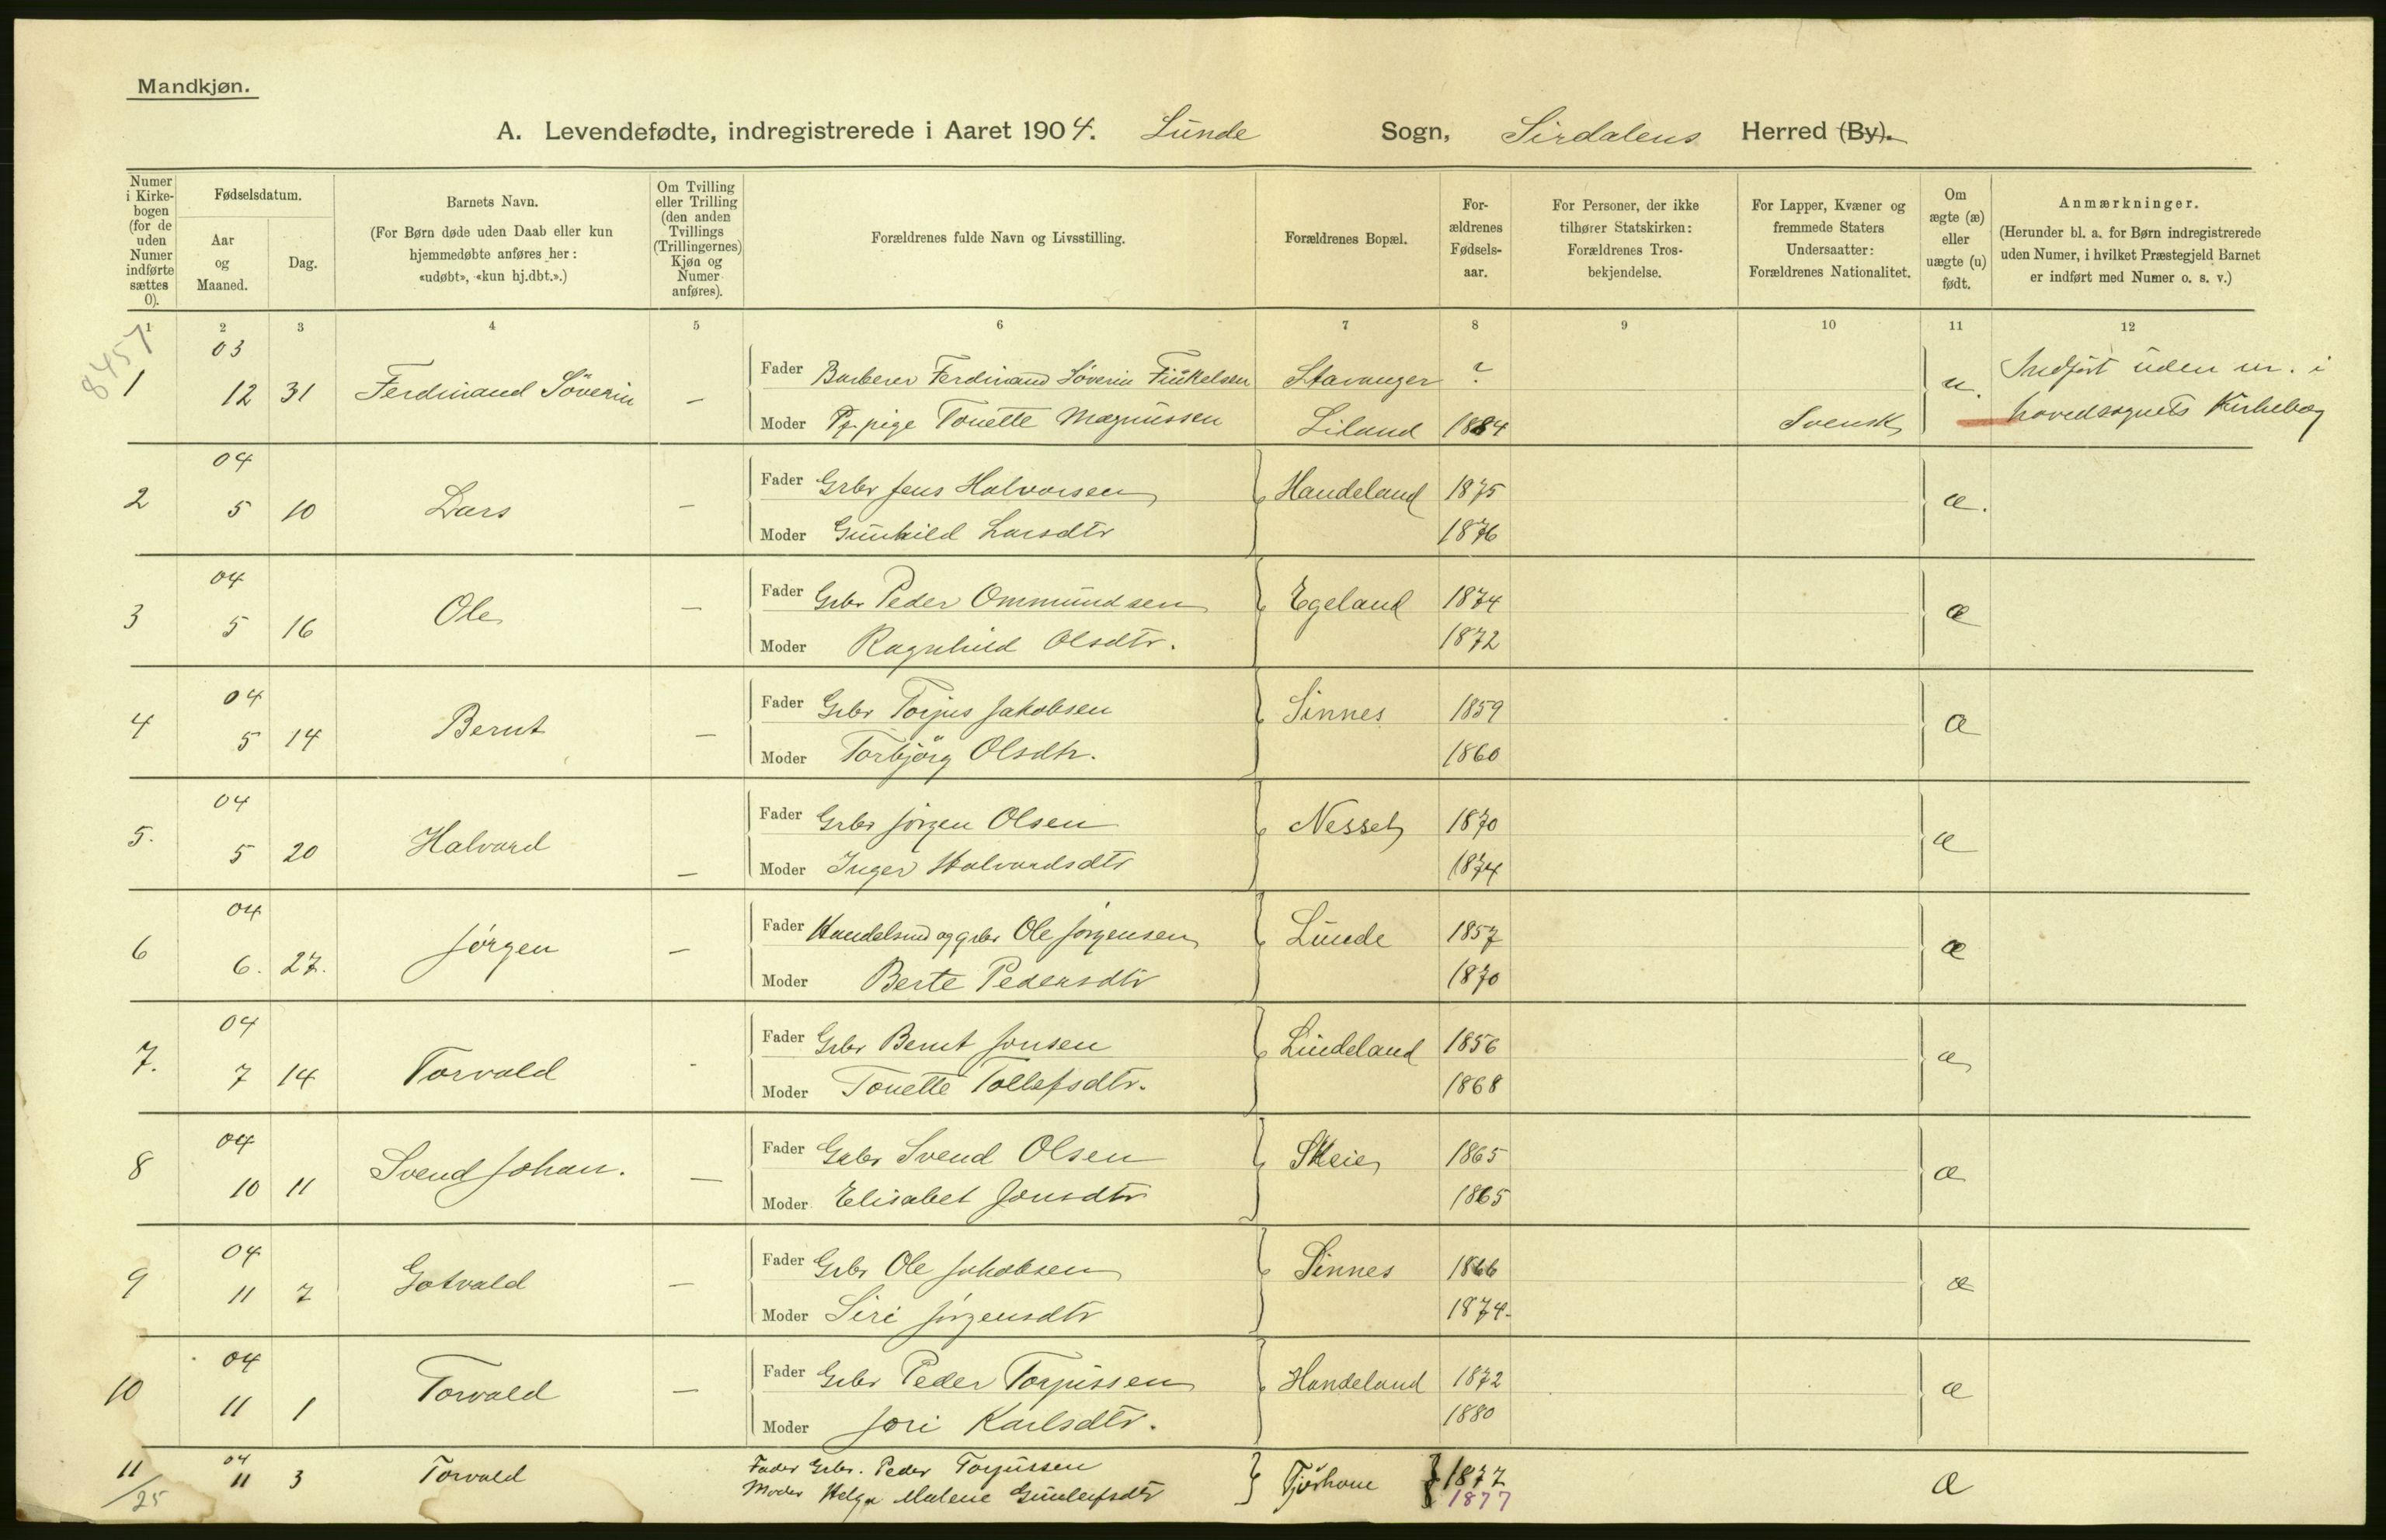 Mandkjøn.
A. Levendefødte, indregistrerede i Aaret 1904. Lunde Sogn, Sirdalens Herred (By).
Numer i Kirkebogen (for de uden Numer indførte sættes 0).
Fødselsdatum.
Aar og Maaned.
Dag.
Barnets Navn.
(For Børn døde uden Daab eller kun hjemmedøbte anføres her: «udøbt», «kun hj.dbt.».)
Om Tvilling eller Trilling (den anden Tvillings (Trillingernes) Kjøn og Numer anføres).
Forældrenes fulde Navn og Livsstilling.
Forældrenes Bopæl.
Forældrenes Fødselsaar.
For Personer, der ikke tilhører Statskirken: Forældrenes Trosbekjendelse.
For Lapper, Kvæner og fremmede Staters Undersaatter: Forældrenes Nationalitet.
Om ægte (æ) eller uægte (u) født.
Anmærkninger.
(Herunder bl. a. for Børn indregistrerede uden Numer, i hvilket Præstegjeld Barnet er indført med Numer o. s. v.)
1 2 3 4 5 6 7 8 9 10 11 12
8457
1 03 12 31 Ferdinand Söverin — Fader Barberer Ferdinand Söverin Finkelsen Stavanger ? u. Indført uden nr. i
Moder Pige Tonette Magnussen Liland 1884 Svensk hovedsognets Kirkebog
2 04 5 10 Lars — Fader Grbr Jens Halvorsen Handeland 1875 æ.
Moder Gunhild Larsdtr 1876
3 04 5 16 Ole — Fader Grbr Peder Ommundsen Egeland 1874 æ
Moder Ragnhild Olsdtr. 1872
4 04 5 14 Bernt — Fader Grbr Torjus Jakobsen Sinnes 1859 æ
Moder Torbjörg Olsdtr. 1860
5. 04 5 20 Halvard — Fader Grbr Jörgen Olsen Nesset 1870 æ
Moder Inger Halvardsdtr 1874
6 04 6. 27. Jörgen — Fader Handelsmd og grbr Ole Jörgensen Lunde 1857 æ
Moder Berte Pedersdtr 1870
7. 04 7 14 Torvald - Fader Grbr Bernt Jonsen Lindeland 1856 æ
Moder Tonette Tollefsdtr. 1868
8 04 10 11 Svend Johan. — Fader Grbr Svend Olsen Skeie 1865 æ
Moder Elisabet Jonsdtr 1865
9 04 11 7 Gotvald — Fader Grbr Ole Jakobsen Sinnes 1866 æ
Moder Siri Jörgensdtr 1874.
10 04 11 1 Torvald — Fader Grbr Peder Torjussen Handeland 1872 æ
Moder Jori Karlsdtr. 1880
11 04 11 3 Torvald Fader Grbr. Peder Torjussen Tjörhom 1877 æ
/25 Moder Helga Malene Gunleifsdtr 1877